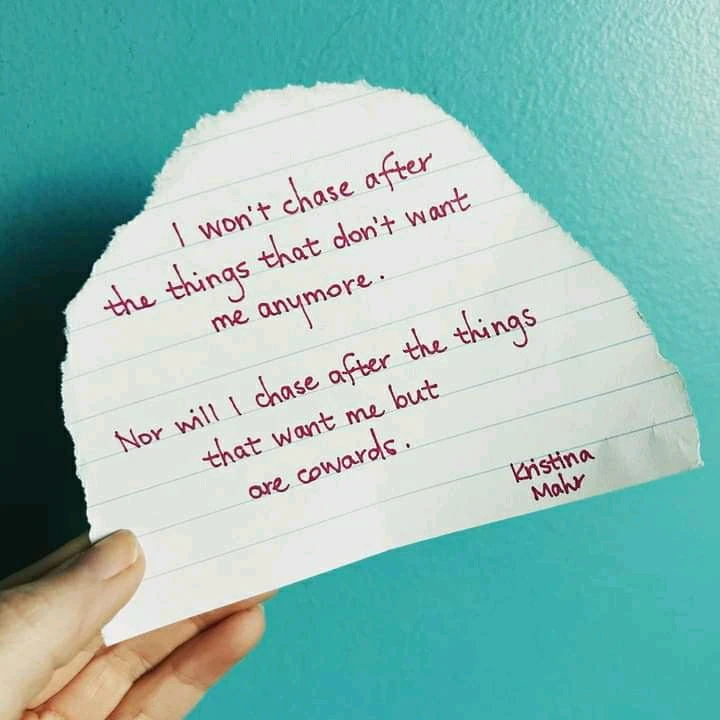 I won't chase after
the things that don't want
me anymore.
Nor will I chase after the things
that want me but
are cowards.
Kristina
Mahr